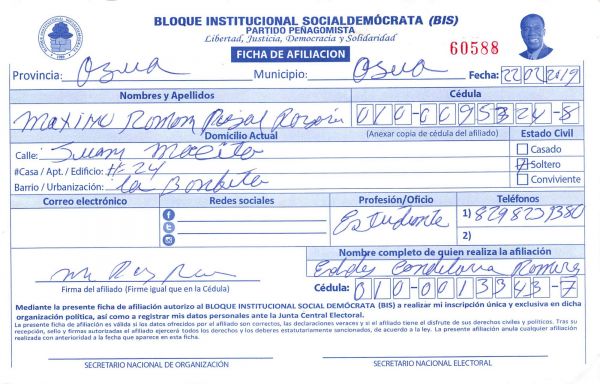 BLOQUE INSTITUCIONAL SOCIALDEMÓCRATA (BIS)
PARTIDO PEÑAGOMISTA
Libertad, Justicia, Democracia y Solidaridad
FICHA DE AFILIACION
60588
Provincia: Azua Municipio: Azua Fecha: 22/02/2019
Nombres y Apellidos Cédula
Maximo Ramon 010-0095324-8
Domicilio Actual (Anexar copia de cédula del afiliado) Estado Civil
Calle: Casado
#Casa / Apt. / Edificio: # 24 Soltero
Barrio / Urbanización: La Bombita Conviviente
Correo electrónico Redes sociales Profesión/Oficio Teléfonos
Estudiante 1)
2)
Nombre completo de quien realiza la afiliación
Candelaria Ramirez
Firma del afiliado (Firme igual que en la Cédula) Cédula: 010-0013343-7
Mediante la presente ficha de afiliación autorizo al BLOQUE INSTITUCIONAL SOCIAL DEMÓCRATA (BIS) a realizar mi inscripción única y exclusiva en dicha
organización política, así como a registrar mis datos personales ante la Junta Central Electoral.
La presente ficha de afiliación es válida si los datos ofrecidos por el afiliado son correctos, las declaraciones veraces y si el afiliado tiene el disfrute de sus derechos civiles y políticos. Tras su
recepción, sello y firmas autorizadas el afiliado ejercerá todos los derechos y los deberes estatutariamente sancionados, de acuerdo a la ley. La presente afiliación anula cualquier afiliación
realizada con anterioridad a la fecha que aparece en esta ficha.
SECRETARIO NACIONAL DE ORGANIZACIÓN SECRETARIO NACIONAL ELECTORAL